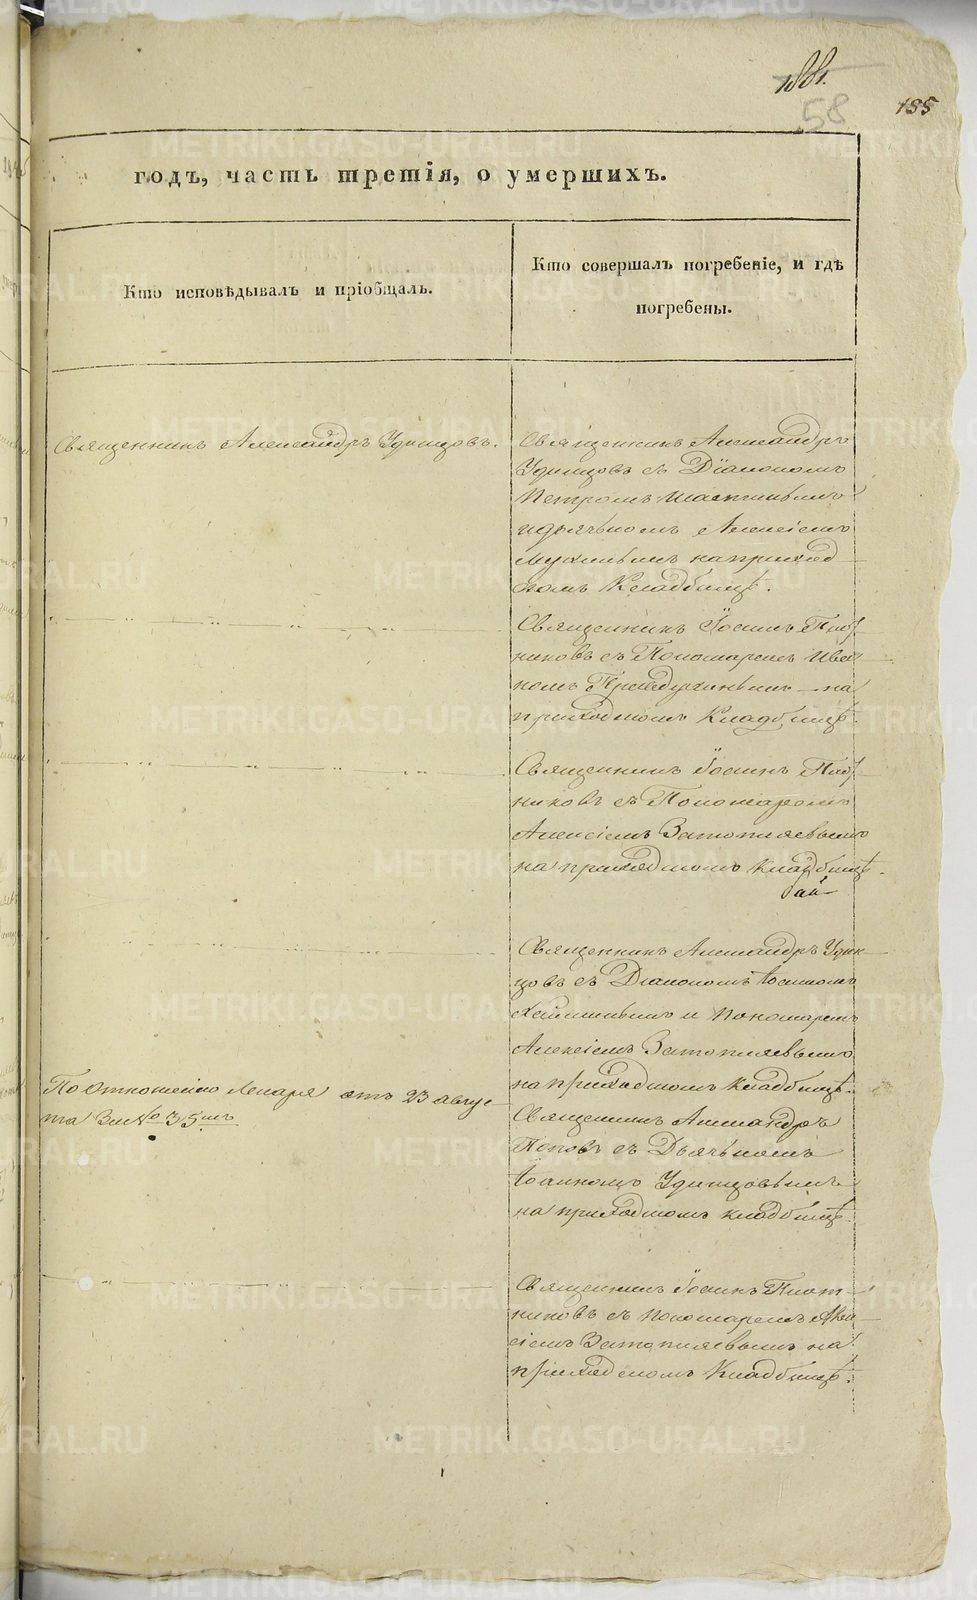 188.
58
185
годъ, часть третія, о умершихъ.
Кто исповѣдывалъ и пріобщалъ.
Кто совершалъ погребеніе, и гдѣ
погребены.
Священникъ Александръ Удинцовъ.
Священникъ Александръ
Удинцовъ съ Діакономъ
Петромъ
и дьячькомъ Алексіемъ
на приход
скомъ Кладбищѣ.
Священникъ Іосифъ Плот
никовъ съ Пономаремъ Ива
номъ на
приходскомъ Кладбищѣ.
Священникъ Іосифъ Плот
никовъ съ Пономаремъ
Алексіемъ Затопляевымъ
на приходскомъ Кладбищѣ.
Священникъ Александръ Удин
цовъ съ Діакономъ Іосифомъ
и Пономаремъ
Алексіемъ Затопляевымъ
на приходскомъ Кладбищѣ.
По Отношенію Лекаря отъ 23 Авгус
та За № 35мъ
Священникъ Александръ
Поповъ съ Дьячькомъ
Іоанномъ Удинцовымъ
на приходскомъ кладбищѣ.
Священникъ Іосифъ Плот
никовъ съ пономаремъ Алек
сіемъ Затопляевымъ на
приходскомъ Кладбищѣ.
METRIKI.GASO-URAL.RU